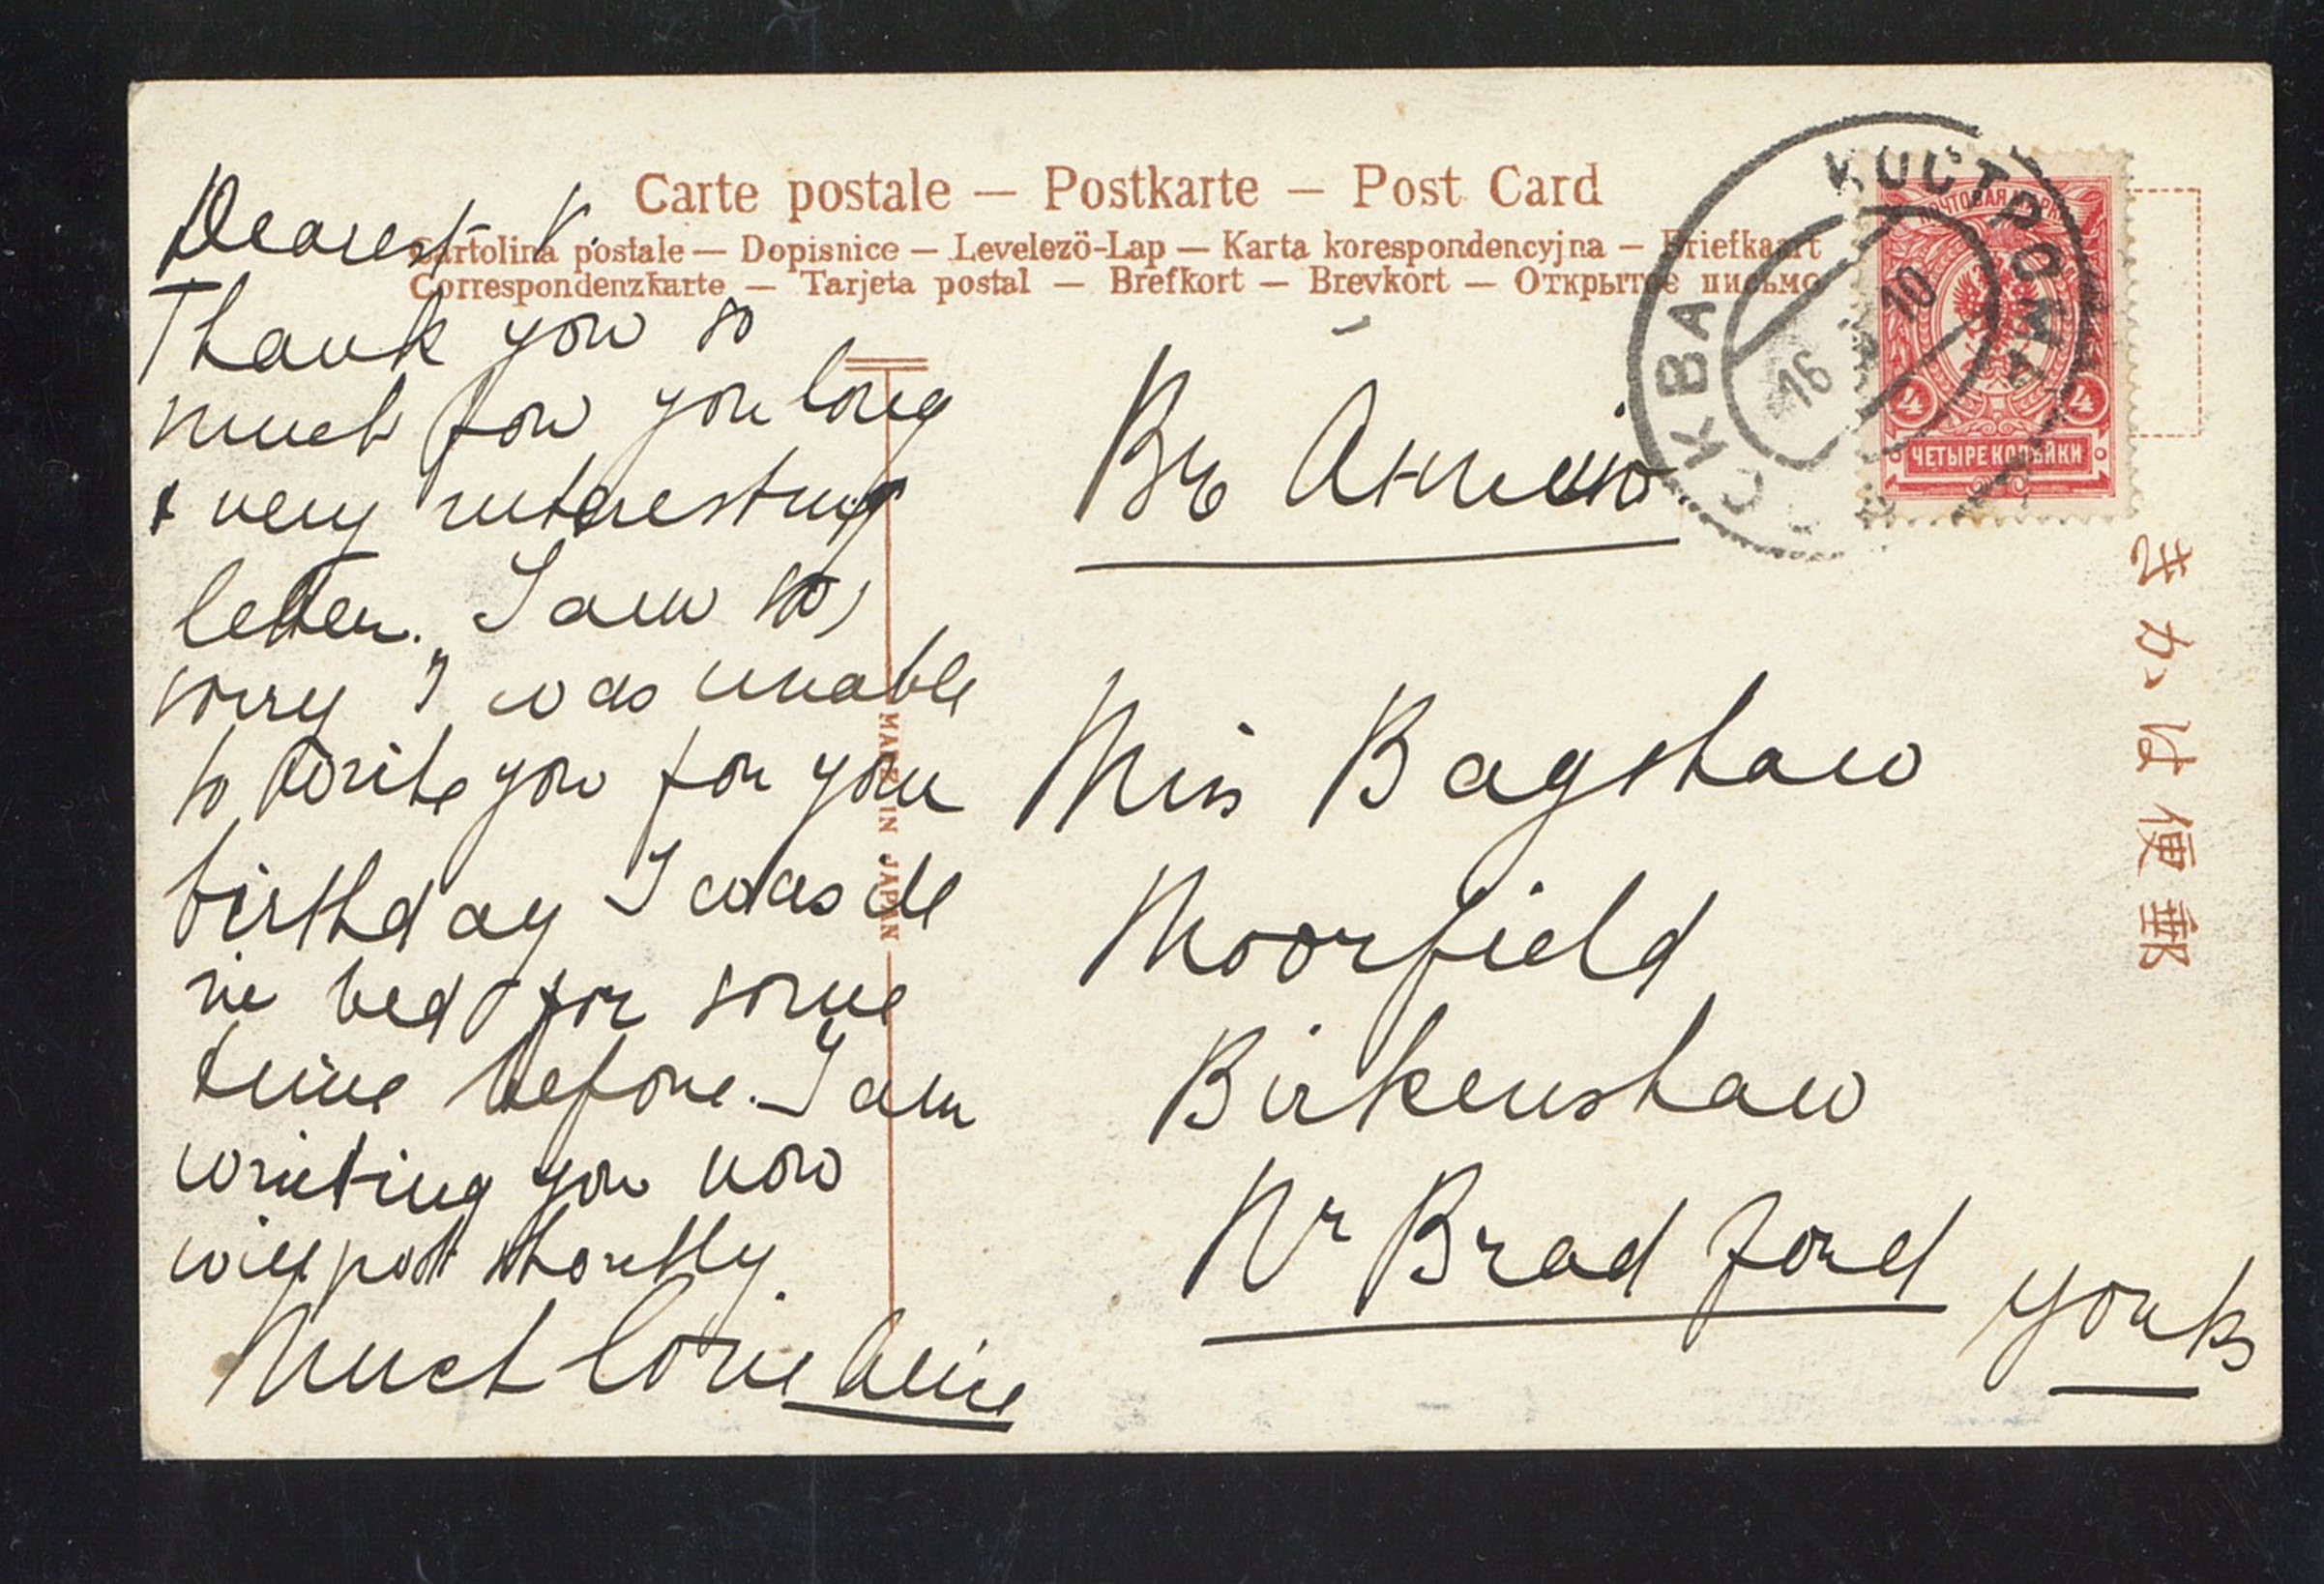 Carte postale — Postkarte — Post Card
Cartolina postale — Dopisnice — Levelezö-Lap — Karta korespondencyjna — Briefkaart
Correspondenzkarte — Tarjeta postal — Brefkort — Brevkort — Открытое письмо
Dearest V.
Thank you so
much for you long
& very interesting
letter. I am so,
sorry I was unable
to write you for your
birthday I was ill
in bed for some
time before. I am
writing you now
will post shortly.
Much love Alice
MADE IN JAPAN
Въ Англiю
Miss Bagshaw
Moorfield
Birkenshaw
Nr Bradford
Yorks
КОСТРОМА
МОСКВА
16 10
ПОЧТОВАЯ МАРКА
4 4
ЧЕТЫРЕ КОПѢЙКИ
郵便はかき